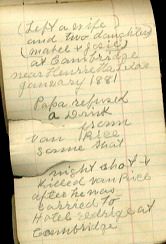 (Left a wife)
and two daughters
(Mabel & Josie)
at Cambridge
near Henrietta
January 1881
Papa refused
a Drink
from
van Price
same shat
night shot &
killed Van Price
after he was
carried to
Hotel
Cambridge